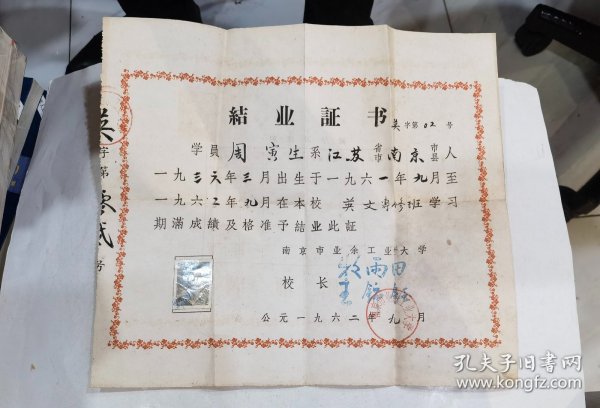 結业証书
英字第02号
学員周寅生系江苏省市南京市县人
一九三六年三月出生于一九六一年九月至
一九六二年九月在本校英文专修班学习
期滿成績及格准予結业此証
南京市业余工业大学
校长
公元一九六二年九月
英字第零贰号
孔夫子旧书网
www.kongfz.com